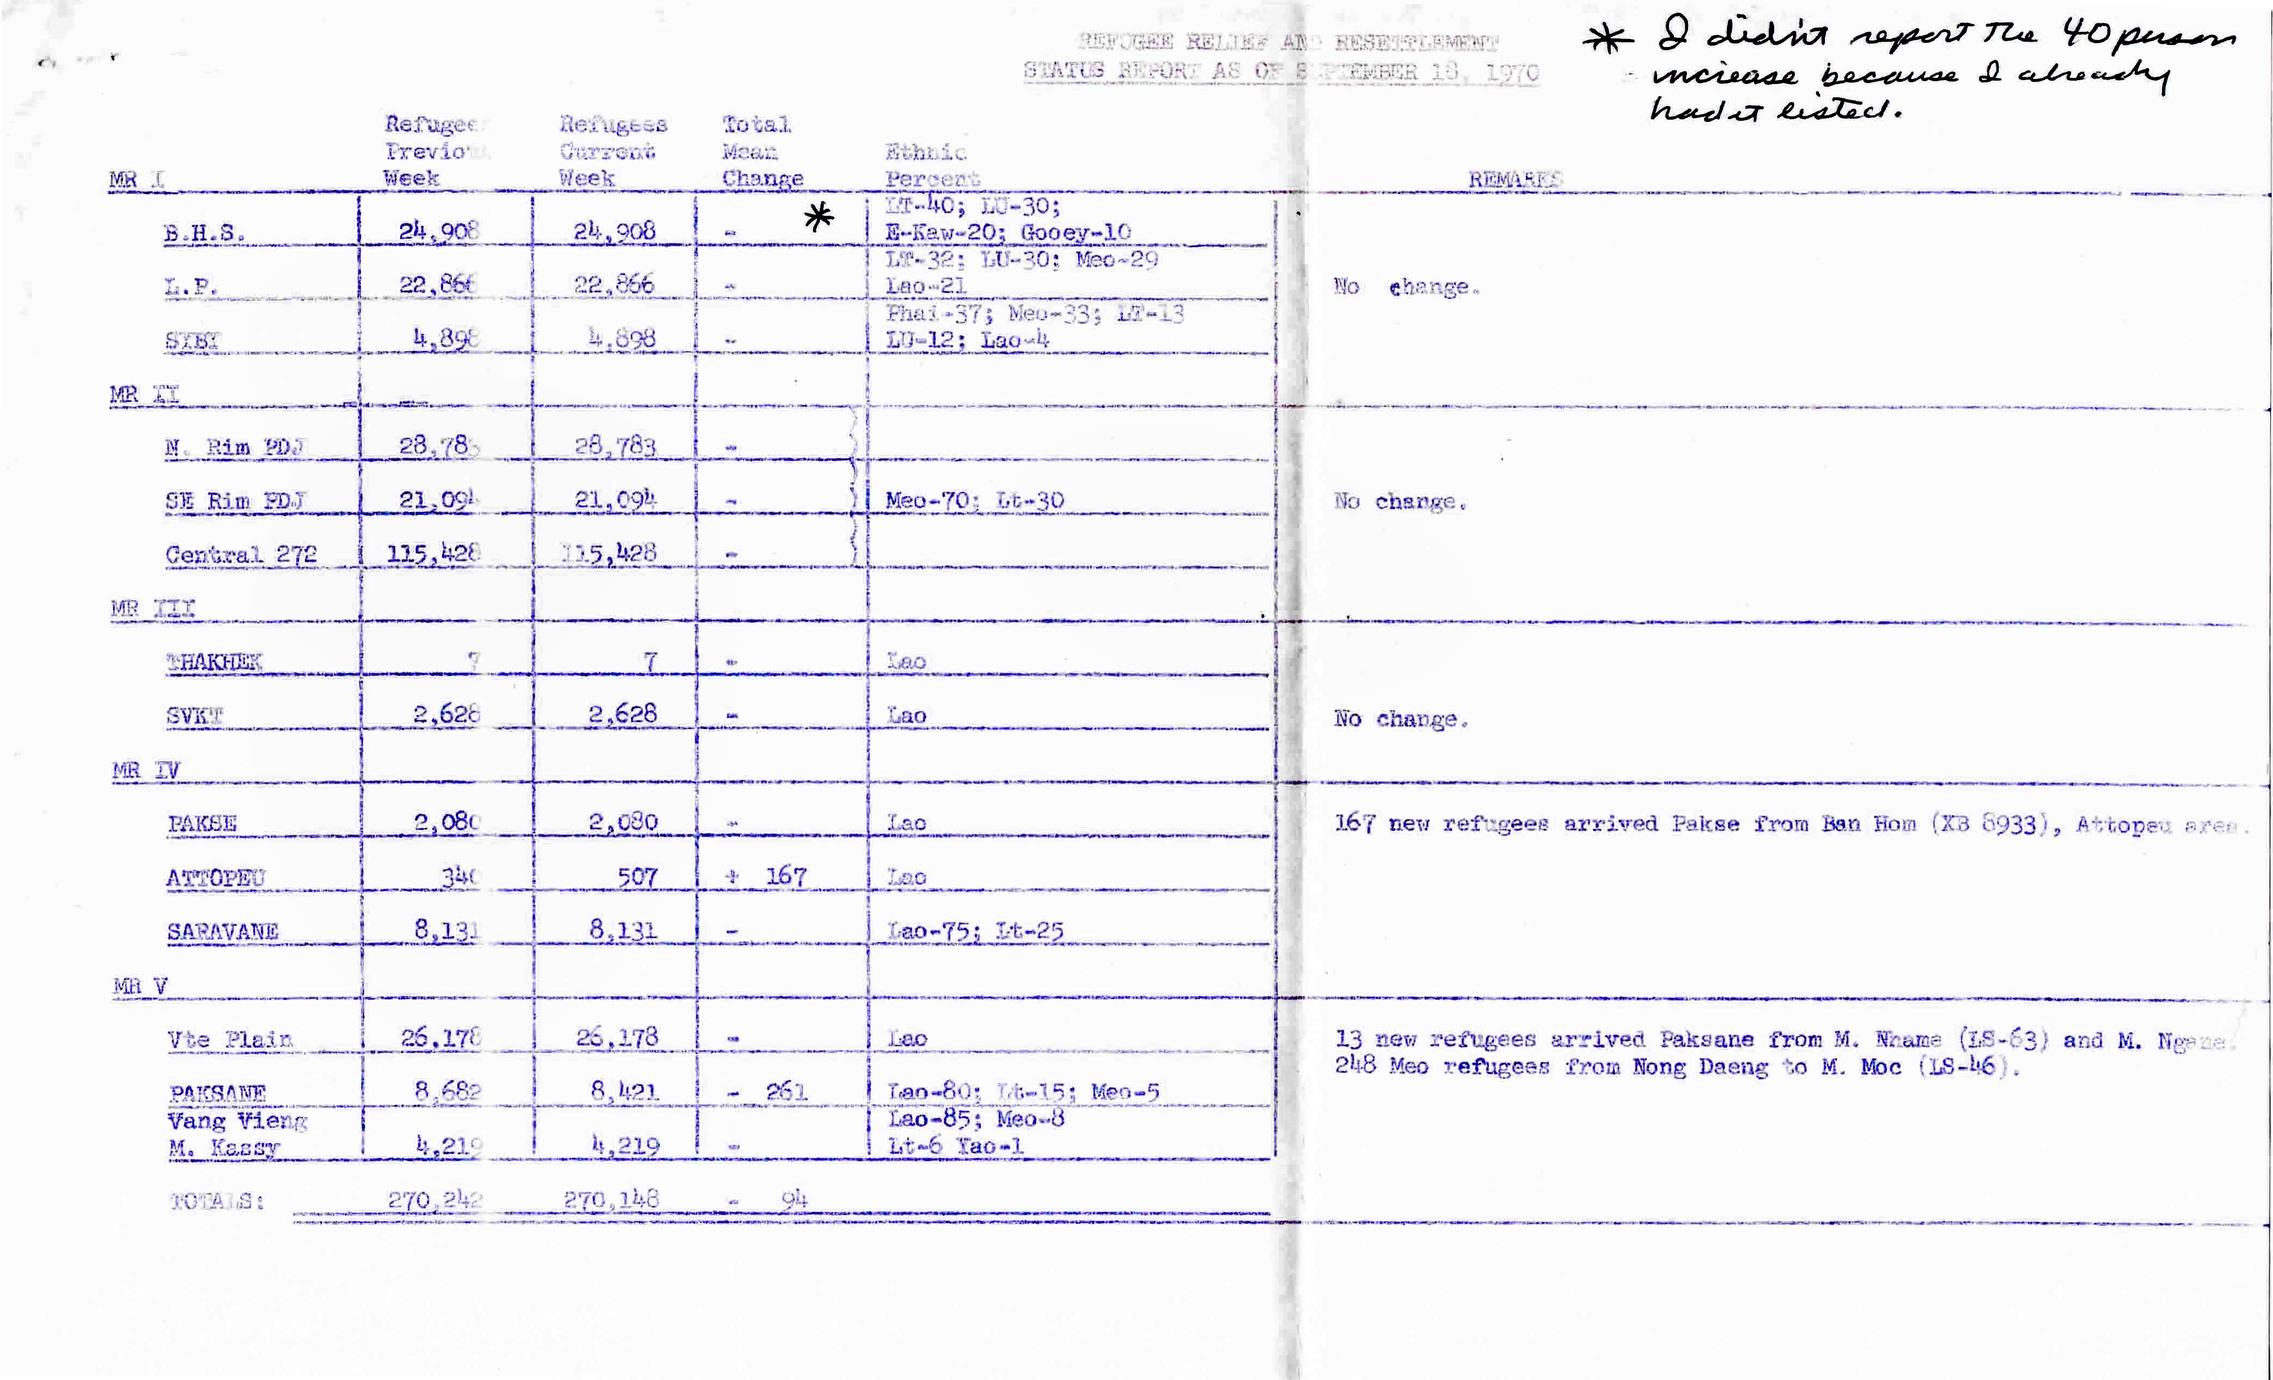 REFUGEE RELIEF AND RESETTLEMENT
STATUS REPORT AS OF SEPTEMBER 18, 1970
* I didn't report the 40 person
increase because I already
had it listed.
MR I Refugees Previous Week Refugees Current Week Total Mean Change Ethnic Percent REMARKS
LT-40; LU-30;
B.H.S. 24,908 24,908 - * E-Kaw-20; Gooey-10
LT-32; LU-30; Meo-29
L.P. 22,866 22,866 - Lao-21 No change.
Phai-37; Meo-33; LT-13
SYBY 4,898 4,898 - LU-12; Lao-4
MR II
N. Rim PDJ 28,783 28,783 -
SE Rim PDJ 21,094 21,094 - Meo-70; Lt-30 No change.
Central 272 115,428 115,428 -
MR III
THAKHEK 7 7 - Lao
SVKT 2,628 2,628 - Lao No change.
MR IV
PAKSE 2,080 2,080 - Lao 167 new refugees arrived Pakse from Ban Hom (XB 8933), Attopeu area.
ATTOPEU 340 507 + 167 Lao
SARAVANE 8,131 8,131 - Lao-75; Lt-25
MR V
Vte Plain 26,178 26,178 - Lao 13 new refugees arrived Paksane from M. Nhame (LS-63) and M. Ngane.
248 Meo refugees from Nong Daeng to M. Moc (LS-46).
PAKSANE 8,682 8,421 - 261 Lao-80; Lt-15; Meo-5
Vang Vieng Lao-85; Meo-8
M. Kassy 4,219 4,219 - Lt-6 Yao-1
TOTALS: 270,242 270,148 - 94